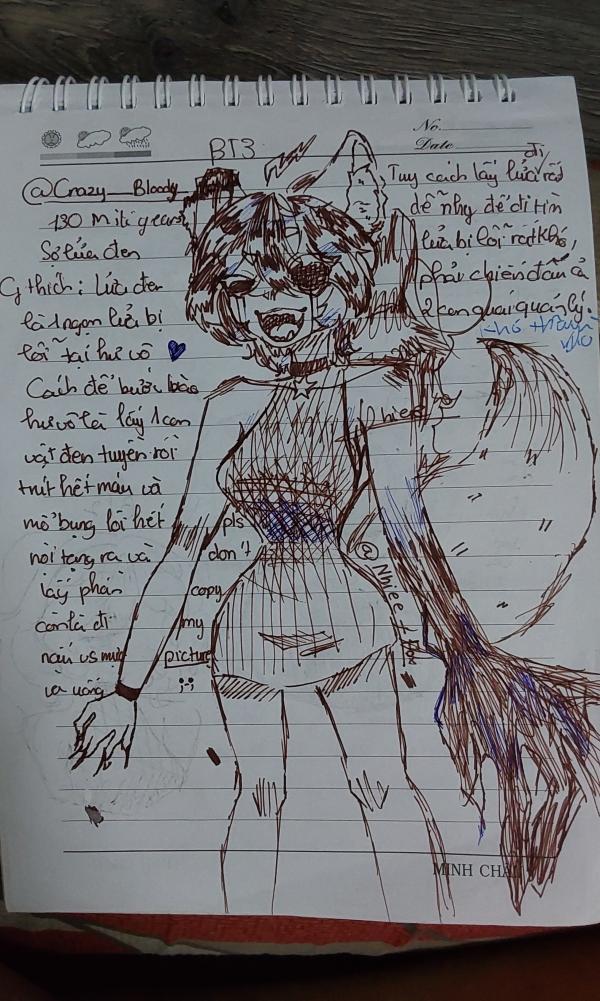 No.
Date
BT3
@Crazy_Bloody
130 Mili years
Sợ lửa đen
thích: Lửa đen
là 1 ngọn lửa bị
lỗi tại hư vô
Cách để bước vào
hư vô là lấy 1 con
vật đen tuyền rồi
trút hết máu và
mổ bụng lôi hết
nội tạng ra và
lấy phần
còn lại đi
nấu
và uống
Tuy cách lấy lửa rất
dễ nhg để đi tìm
lửa bị lỗi rất khó,
phải chiến đấu cả
2 con quái quá lý
pls
don't
copy
my
picture
;;
@Nhiee_Fox
MINH CHÂU